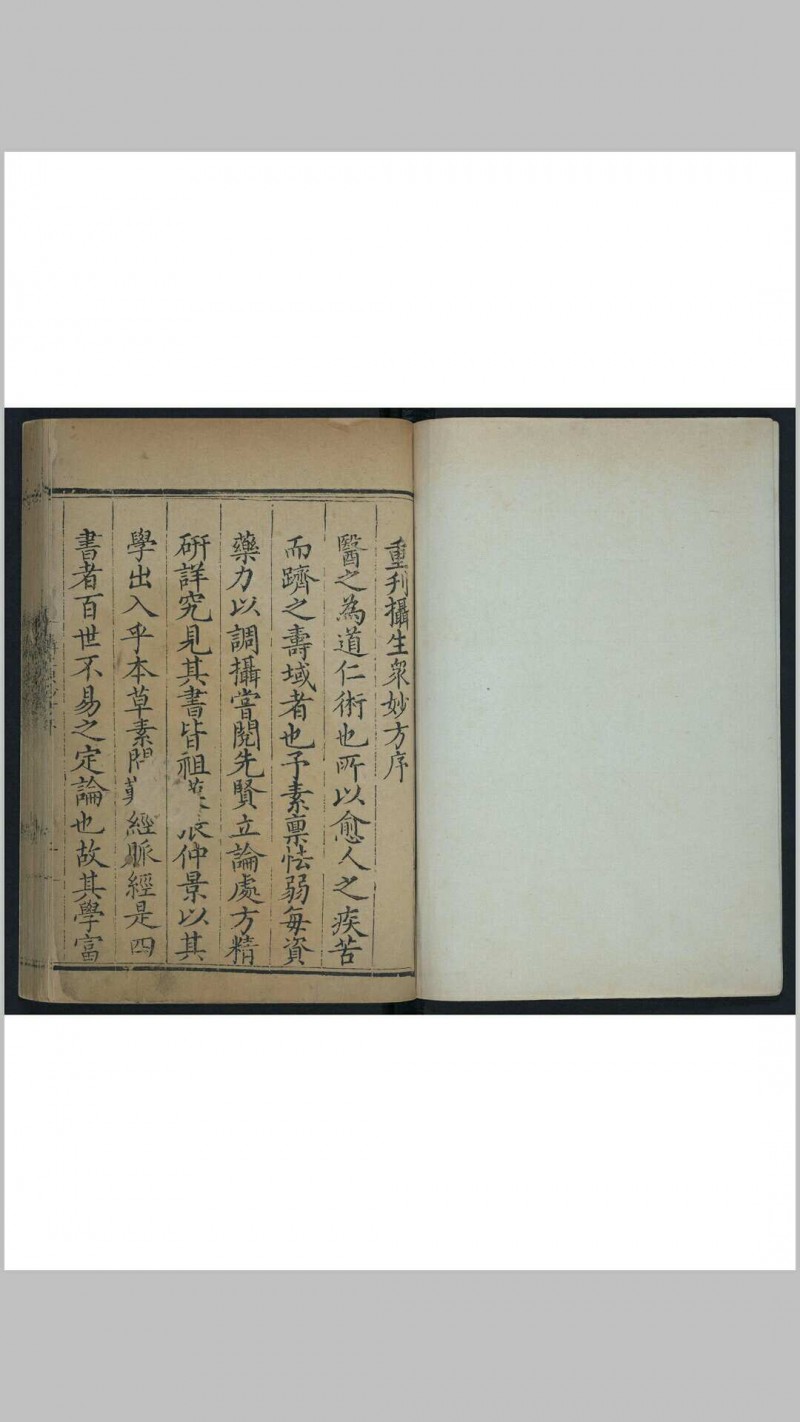 重刋攝生衆妙方序
醫之為道仁術也所以愈人之疾苦
而躋之壽域者也予素稟怯弱每資
藥力以調攝嘗閱先賢立論處方精
研詳究見其書皆祖仲景以其
學出入乎本草素問經脈經是四
書者百世不易之定論也故其學富